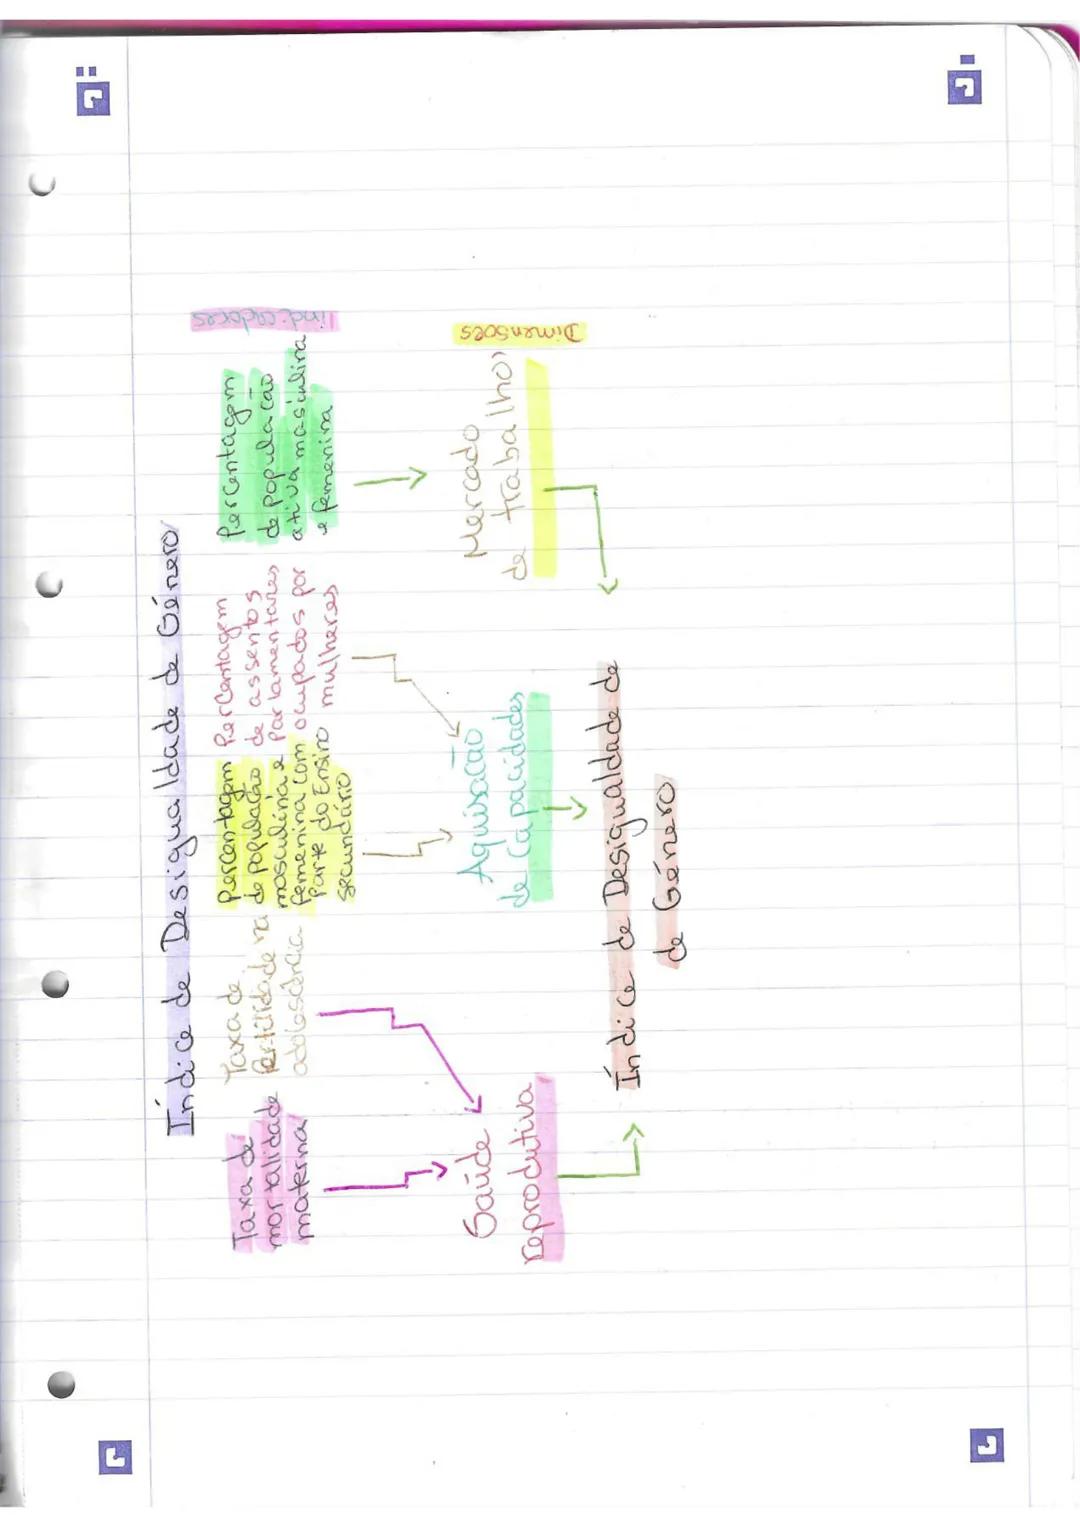 Índice de Desigualdade de Género
Taxa de
mortalidade
materna
Taxa de
fertilidade na
adolescência
Percentagem
de população
masculina e
femenina com
parte do Ensino
secundário
Percentagem
de assentos
parlamentares
ocupados por
mulheres
Percentagem
de população
ativa masculina
e femenina
indicadores
Saúde
reprodutiva
Aquisação
de Capacidades
Mercado
de trabalho
Dimensões
Índice de Desigualdade de
de Género